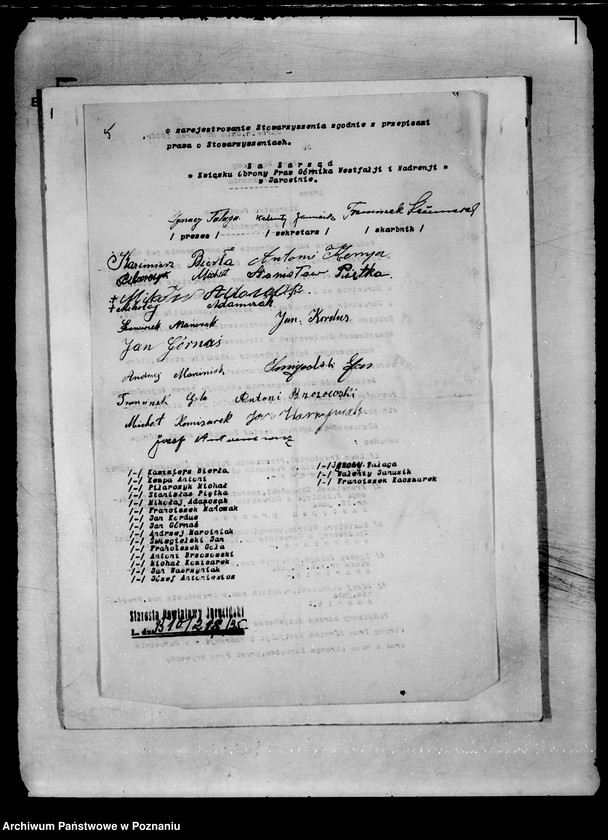 5
o zarejestrowanie Stowarzyszenia zgodnie z przepisami
prawa o Stowarzyszeniach.
Za Zarząd
" Związku Obrony Praw Górnika Westfalji i Nadrenji "
w Jarocinie.
Ignacy Talaga Walenty Janusik Franciszek
/ prezes / / sekretarz / / skarbnik /
Kazimierz Bierła Antoni Kempa
Pilarczyk Michał Stanisław Piętka
+ Mikołaj
+ Mikołaj Adamczak
Franciszek Jan. Kordus
Jan Górnaś
Andrzej Marciniak Jan
Franciszek Gola Antoni Brzozowski
Michał Komisarek Jan
Józef Antoniewicz
/-/ Kazimierz Bierła /-/ Ignacy Talaga
/-/ Kempa Antoni /-/ Walenty Janusik
/-/ Pilarczyk Michał /-/ Franciszek Kaczmarek
/-/ Stanisław Piętka
/-/ Mikołaj Adamczak
/-/ Franciszek Mańczak
/-/ Jan Kordus
/-/ Jan Górnaś
/-/ Andrzej Marciniak
/-/ Śmigielski Jan
/-/ Franciszek Gola
/-/ Antoni Brzozowski
/-/ Michał Komisarek
/-/ Jan Wawrzyniak
/-/ Józef Antoniewicz
Starosta Powiatowy Jarociński
L. dz. B 10/218/35
Archiwum Państwowe w Poznaniu